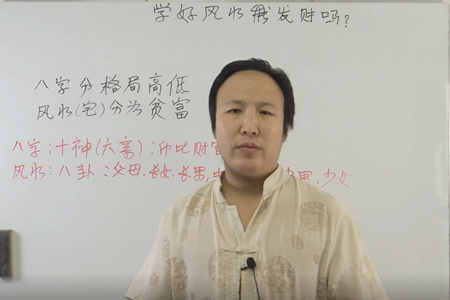 学好风水能发财吗?
八字分格局高低
风水(宅)分为贫富
八字:十神(六亲):印比财官
风水:八卦:父母,长女,长男,中 男,少女